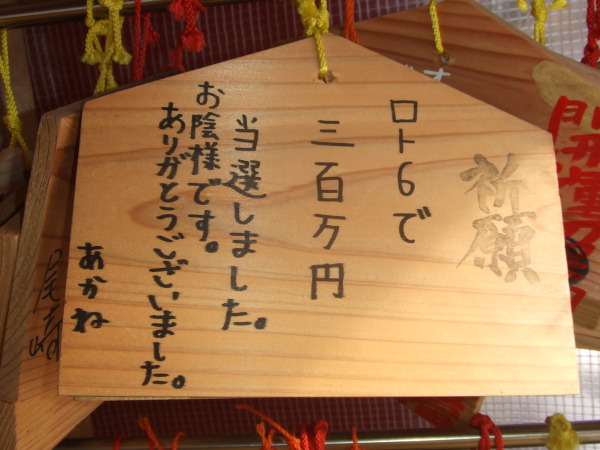 祈願
ロト6で
三百万円
当選しました。
お陰様です。
ありがとうございました。
あかね
開運
尾崎